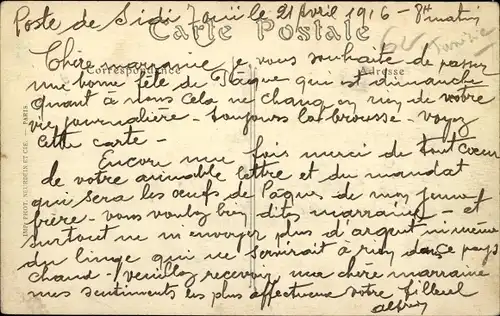 Poste de Sidi le 21 Avril 1916 - 8h matin
Carte Postale
Correspondance
Adresse
Chère marraine je vous souhaite de passer
une bonne fête de Pâque qui est dimanche
quant à nous cela ne change en rien de notre
vie journalière - toujours la brousse - voyez
cette carte -
Encore une fois merci de tout cœur
de votre aimable lettre et du mandat
qui sera les œufs de Pâques de mon jeune
frère - vous voulez bien dites marraine - et
surtout ne m'envoyez plus d'argent ni même
du linge qui ne servirait à rien dans ce pays
chaud - veuillez recevoir ma chère marraine
mes sentiments les plus affectueux votre filleul
IMP. PHOT. NEURDEIN ET CIE. - PARIS